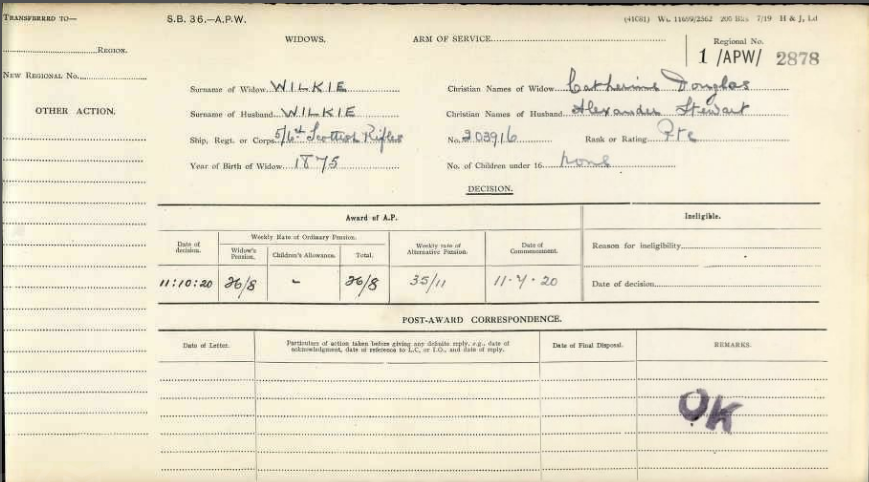 TRANSFERRED TO—
REGION.
NEW REGIONAL NO.
OTHER ACTION.
S.B. 36.—A.P.W.
(41C81) Wt. 11699/2562 200 Bks 7/19 H & J, Ld
WIDOWS. ARM OF SERVICE
Regional No.
1 /APW/ 2878
Surname of Widow WILKIE Christian Names of Widow Catherine Douglas
Surname of Husband WILKIE Christian Names of Husband Alexander Stewart
Ship, Regt. or Corps 5/6th Scottish Rifles No. 203916 Rank or Rating Pte
Year of Birth of Widow 1875 No. of Children under 16 none
DECISION.
Award of A.P. Ineligible.
Date of decision. Weekly Rate of Ordinary Pension. Weekly rate of Alternative Pension. Date of Commencement.
Widow's Pension. Children's Allowance. Total.
Reason for ineligibility
11:10:20 26/8 - 26/8 35/11 11-7-20
Date of decision
POST-AWARD CORRESPONDENCE.
Date of Letter. Particulars of action taken before giving any definite reply, e.g., date of acknowledgment, date of reference to L.C. or I.O., and date of reply. Date of Final Disposal. REMARKS.
OK